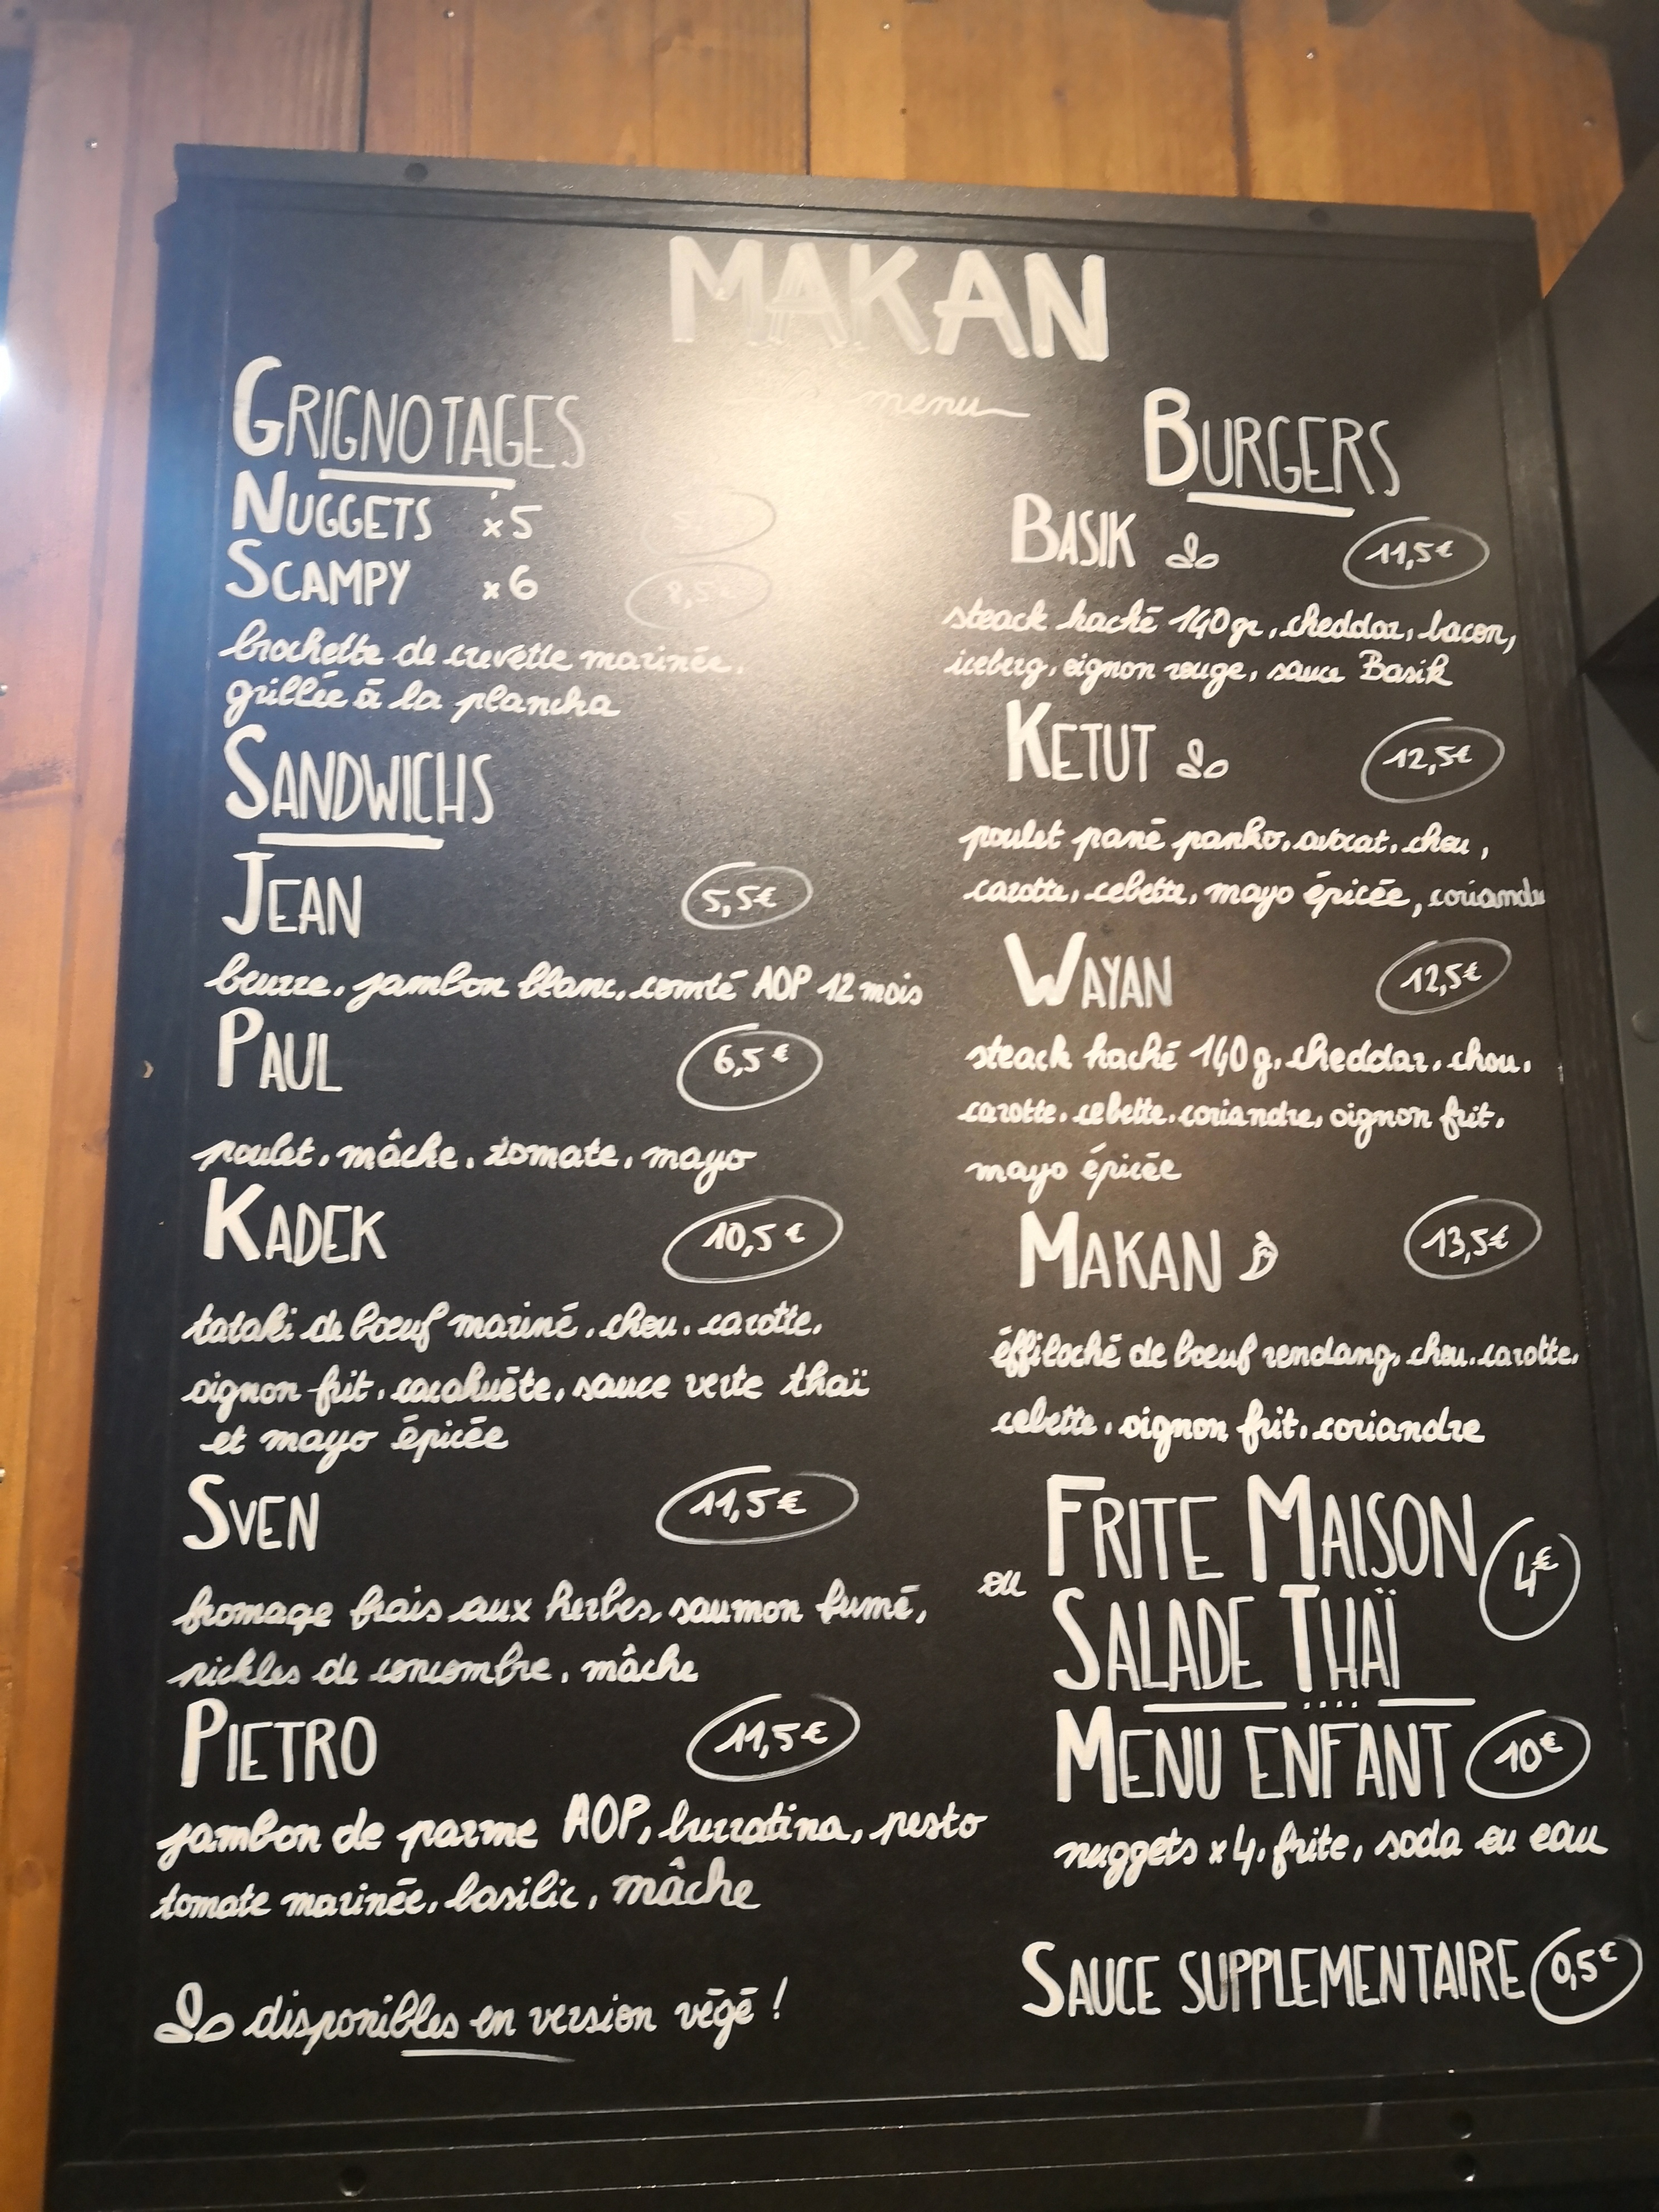 MAKAN
menu
GRIGNOTAGES
NUGGETS x5
SCAMPY x6 8,5
brochette de crevette marinée,
grillée à la plancha
SANDWICHS
JEAN 5,5€
beurre, jambon blanc, comté AOP 12 mois
PAUL 6,5€
poulet, mâche, tomate, mayo
KADEK 10,5€
tataki de bœuf mariné, chou, carotte,
oignon frit, cacahuète, sauce verte thaï
et mayo épicée
SVEN 11,5€
fromage frais aux herbes, saumon fumé,
pickles de concombre, mâche
PIETRO 11,5€
jambon de parme AOP, burratina, pesto
tomate marinée, basilic, mâche
disponibles en version végé !
BURGERS
BASIK 11,5€
steack haché 140gr, cheddar, bacon,
iceberg, oignon rouge, sauce Basik
KETUT 12,5€
poulet pané panko, avocat, chou,
carotte, cebette, mayo épicée, coriandre
WAYAN 12,5€
steack haché 140g, cheddar, chou,
carotte, cebette, coriandre, oignon frit,
mayo épicée
MAKAN 13,5€
éffiloché de bœuf rendang, chou, carotte,
cebette, oignon frit, coriandre
FRITE MAISON
ou
SALADE THAÏ 4€
MENU ENFANT 10€
nuggets x4, frite, soda ou eau
SAUCE SUPPLEMENTAIRE 0,5€